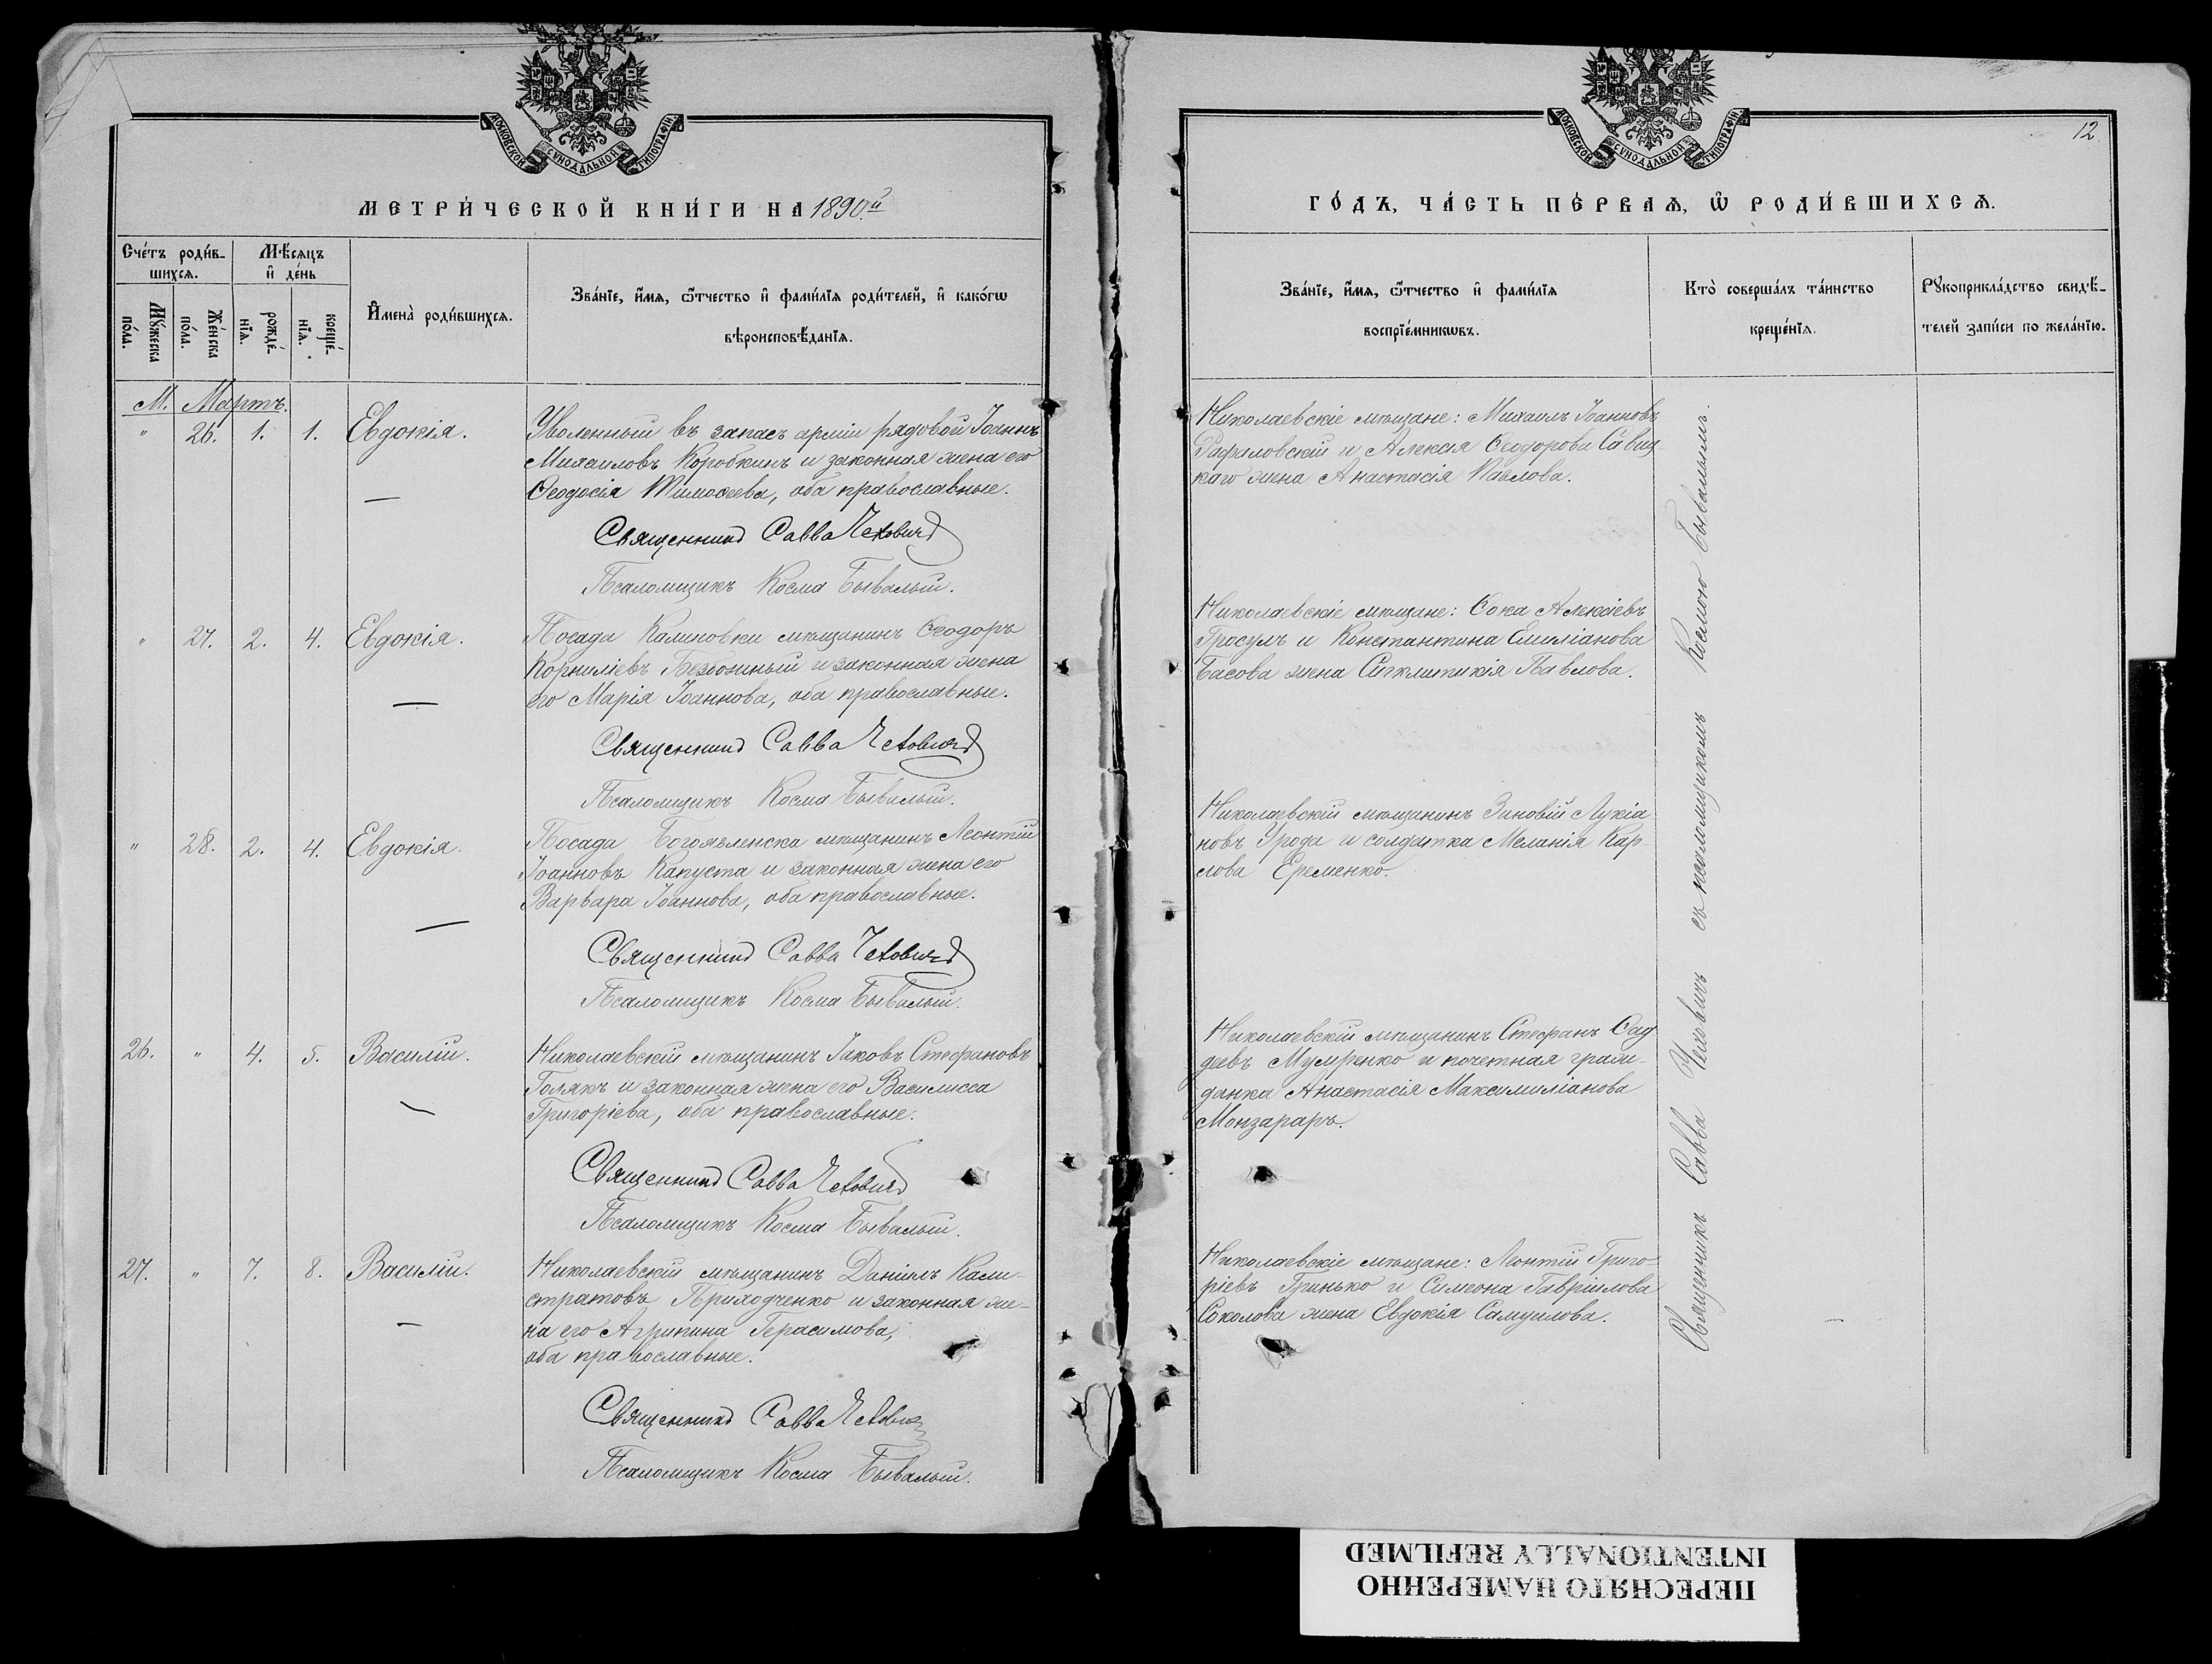 МОСКОВСКОЙ СѴНОДАЛЬНОЙ ТИПОГРАФІИ
МЕТРИ́ЧЕСКОЙ КНИ́ГИ НА 1890.й
Сче́тъ роди́вшихсѧ.
Мѣ́сѧцъ и҆ де́нь
Мꙋ́жеска по́ла.
Же́нска по́ла.
рожде́нїѧ.
креще́нїѧ.
И҆мена̀ роди́вшихсѧ.
Зва́нїе, и҆́мѧ, ѻ҆́тчество и҆ фами́лїѧ роди́телей, и҆ како́гѡ
вѣроисповѣ́данїѧ.
М. Мартъ.
" 26. 1. 1. Евдокія.
Уволенный въ запасъ арміи рядовой Іоаннъ
Михаиловъ Коробкинъ и законная жена его
Ѳеодосія Тимоѳеева, оба православные.
Священникъ Савва Чехович
Псаломщикъ Косма Бывалый.
" 27. 2. 4. Евдокія.
Посада Калиновки мѣщанинъ Ѳеодоръ
Корниліевъ Безбожный и законная жена
его Марія Іоаннова, оба православные.
Священникъ Савва Чехович
Псаломщикъ Косма Бывалый.
" 28. 2. 4. Евдокія.
Посада Богоявленска мѣщанинъ Леонтій
Іоанновъ Капуста и законная жена его
Варвара Іоаннова, оба православные.
Священникъ Савва Чехович
Псаломщикъ Косма Бывалый.
26. " 4. 5. Василій.
Николаевскій мѣщанинъ Іаковъ Стефановъ
Голякъ и законная жена его Василисса
Григоріева, оба православные.
Священникъ Савва Чехович
Псаломщикъ Косма Бывалый.
27. " 7. 8. Василій.
Николаевскій мѣщанинъ Даніилъ Кали-
стратовъ Приходченко и законная же-
на его Агрипина Герасимова,
оба православные.
Священникъ Савва Чехович
Псаломщикъ Косма Бывалый.
МОСКОВСКОЙ СѴНОДАЛЬНОЙ ТИПОГРАФІИ
12
ГО́ДЪ, ЧА́СТЬ ПЕ́РВАѦ, Ѡ҆ РОДИ́ВШИХСѦ.
Зва́нїе, и҆́мѧ, ѻ҆́тчество и҆ фами́лїѧ
воспрїе́мникѡвъ.
Кто̀ соверша́лъ та́инство
креще́нїѧ.
Рꙋкоприкла́дство свидѣ́-
телей за́писи по жела́нїю.
Николаевскіе мѣщане: Михаилъ Іоанновъ
Рафаловскій и Алексія Ѳеодорова Савиц
каго жена Анастасія Павлова.
Николаевскіе мѣщане: Ѳока Алексіевъ
Гросулъ и Константина Емиліанова
Басова жена Сигклитикія Павлова.
Николаевскій мѣщанинъ Зиновій Лукіа
новъ Урода и солдатка Меланія Кар
слова Еременко.
Николаевскій мѣщанинъ Стефанъ Ѳад
деевъ и почетная граж-
данка Анастасія Максимиліанова
Монзараръ.
Николаевскіе мѣщане: Леонтій Григо-
ріевъ Гринько и Симеона Гавріилова
Соколова жена Евдокія Самуилова.
Священникъ Савва Чеховичъ съ псаломщикомъ Космою Бывалымъ.
ПЕРЕСНЯТО НАМЕРЕННО
INTENTIONALLY REFILMED